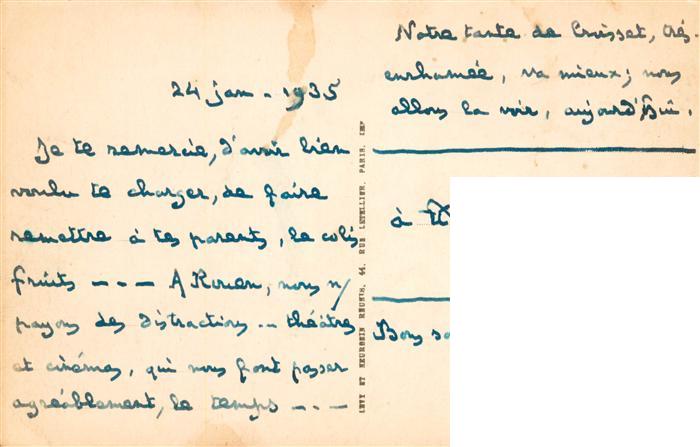 24 jan. 1935
Je te remercie, d'avoir bien
voulu te charger, de faire
remettre à tes parents, le colis
fruits - - - A Rouen, nous n/
payons des distractions .. théâtres
et cinémas, qui nous font passer
agréablement, le temps - - -
LEVY ET NEURDEIN RÉUNIS, 44, RUE LETELLIER, PARIS, IMP
Notre tante de Croisset, très-
enrhumée, va mieux; nous
allons la voir, aujourd'hui.
à
Bons